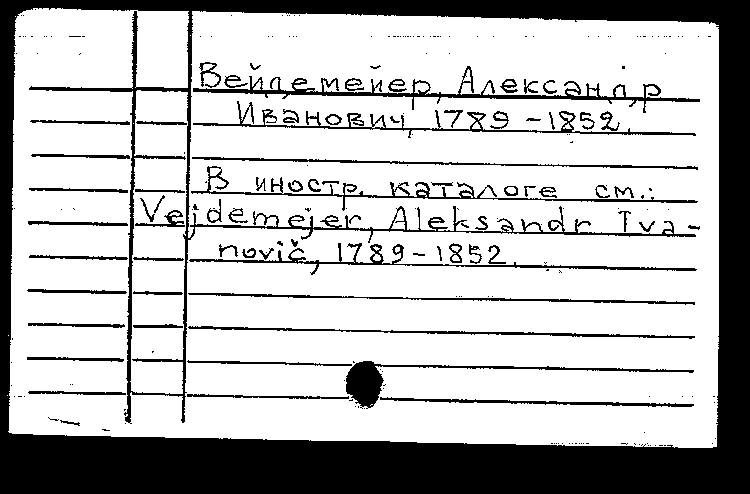 Вейдемейер, Александр
Иванович, 1789 - 1852.
В иностр. каталоге см.:
Vejdemejer, Aleksandr Iva-
novič, 1789 - 1852.